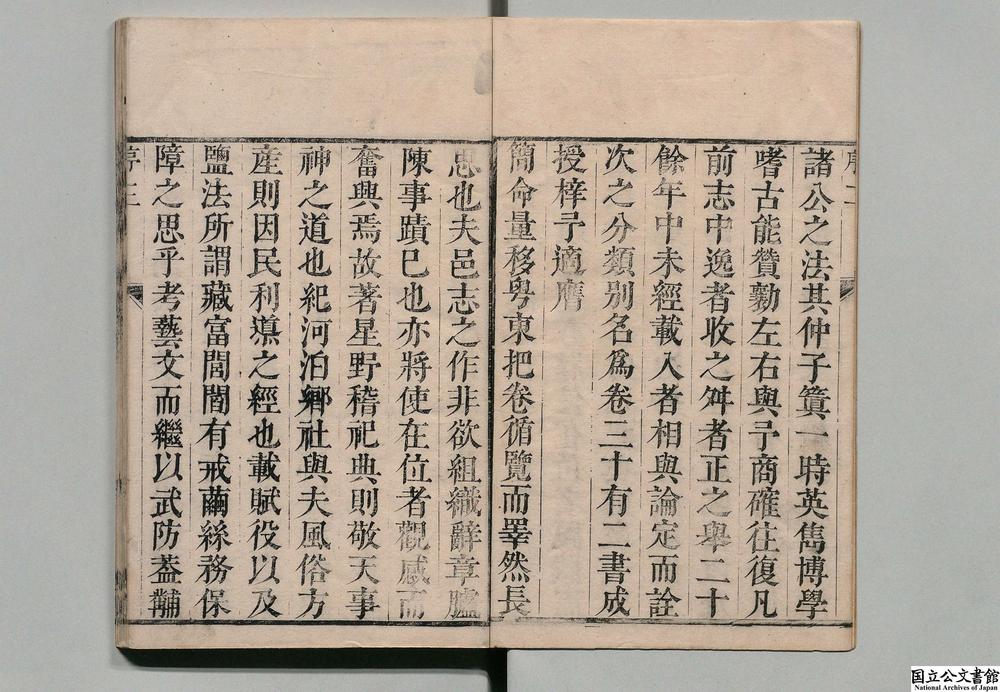 諸公之法其仲子簣一時英雋博學
嗜古能贊勷左右與予商確往復凡
前志中逸者收之舛者正之舉二十
餘年中未經載入者相與論定而詮
次之分類別名爲卷三十有二書成
授梓予適膺
簡命量移粤東把卷循覽而睪然長
思也夫邑志之作非欲組織辭章臚
陳事蹟已也亦將使在位者觀感而
奮興焉故著星野稽祀典則敬天事
神之道也紀河泊鄉社與夫風俗方
產則因民利導之經也載賦役以及
鹽法所謂藏富閭閻有戒繭絲務保
障之思乎考藝文而繼以武防葢黼
序二
序三
国立公文書館
National Archives of Japan